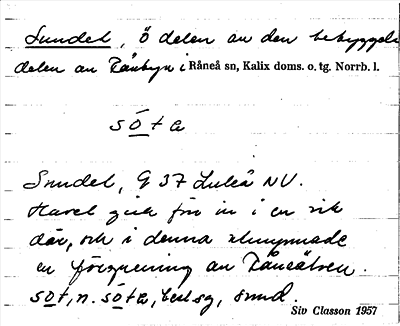 Sundet, ö delen av den bebyggda
delen av Rånbyn i Råneå sn, Kalix doms. o. tg. Norrb. l.
sọ́ta
Sundet, G 37 Luleå NV.
Havet gick förr in i en vik
där, och i denna utmynnade
en förgrening av Råneälven.
sot, n. sota, best sg, sund.
Siv Classon 1957